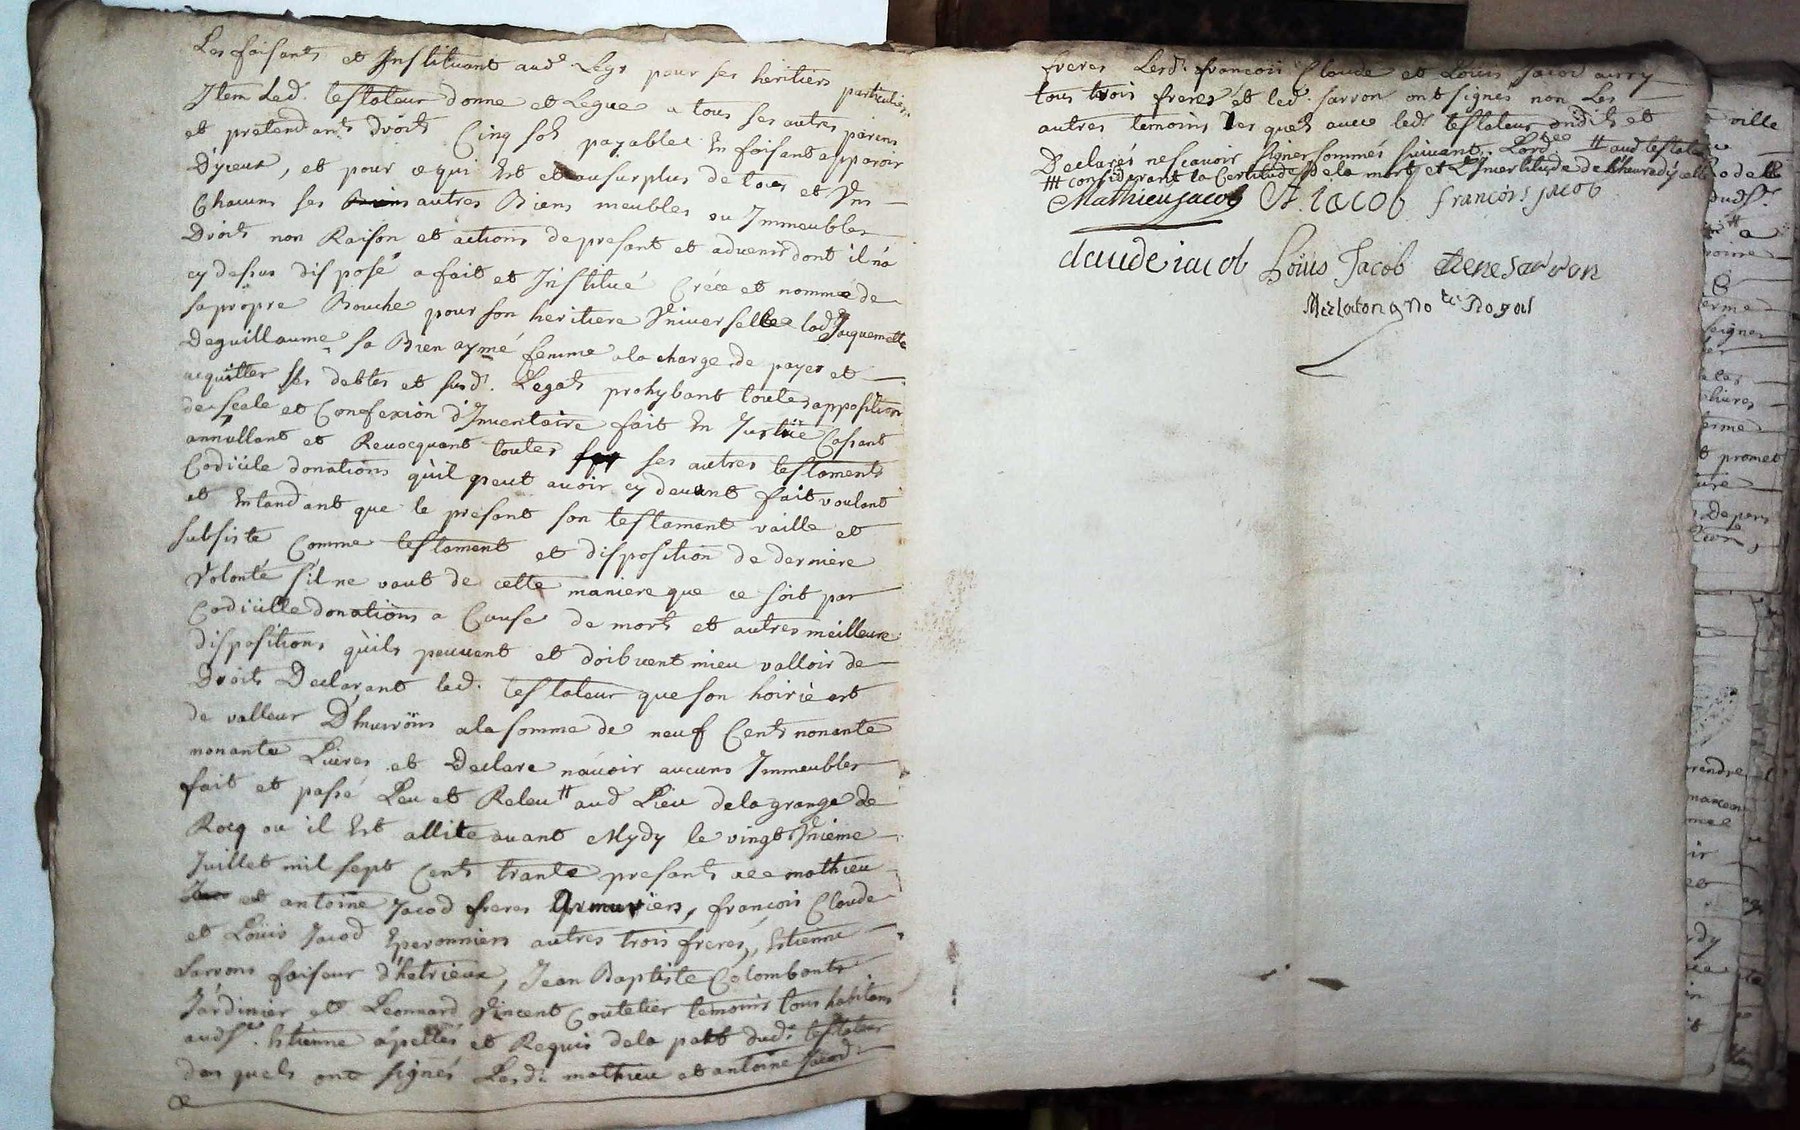 Les faisants et Instituant aud. Legs pour ses heritiers particuliers
Item led. testateur donne et Legue a tous ses autres parens
et pretendants droits Cinq sols payables En faisant apparoir
D'yceux, et pour ce qui Est et au surplus de tous et Uns
Chacuns ses autres Biens meubles ou Immeubles
Droits non Raison et actions de presant et advenir dont il n'a
cy dessus disposé a fait et Institué Créée et nommée de
sa propre Bouche pour son heritiere Universelle lad. Jacquemette
Deguillaume sa Bien aymé femme a la charge de payer et
acquitter ses debtes et susd. Legats prohybant toutes apposition
de scele et Confexion d'Inventaire fait En Justice Cassant
annullant et Revocquant toutes ses autres testaments
Codicile donations qu'il peut avoir cy devant fait voulant
et Entandant que le presant son testament vaille et
subsiste Comme testament et disposition de derniere
Volonté s'il ne vaut de cette maniere que ce soit par
Codicille donations a Cause de mort et autres meilleure
dispositions qu'ils peuvent et doibvent mieu valloir de
Droits Declarant led. testateur que son hoirie est
de valleur D'huivoins a la somme de neuf Cents nonante
nonante Livres et Declare n'avoir aucuns Immeubles
fait et passé Leu et Releu aud Lieu de la grange de
Rocq ou il Est allité avant Mydy le vingt Unieme
Juillet mil sept Cents trante presants mathieu
et antoine Jacod freres Armuriers, françois Claude
et Louis Jacod Eperonniers autres trois freres, Estienne
Sarrons faiseur d'hetrieux, Jean Baptiste Colombants
Jardinier et Leonnard Vincent Coutelier temoins tous habitans
aud St. Etienne apellés et Requis de la part dud. testateur
des quels ont signés Lesd. mathieu et antoine Jacod
freres Lesd. françois Claude et Louis Jacod aussy
tous trois freres et led. Sarron ont signés non Les
autres temoins les quels avec led. testateur ondits et
Declarés ne scavoir signer sommés suivant Lord.ce aud testateur
considerant la Certitude de la mort et L'Incertitude de l'heure d'ycelle
Mathieu Jacob A. iacob françois jacob
claude iacob Loüis Jacob etiene sarron
Notre Royal